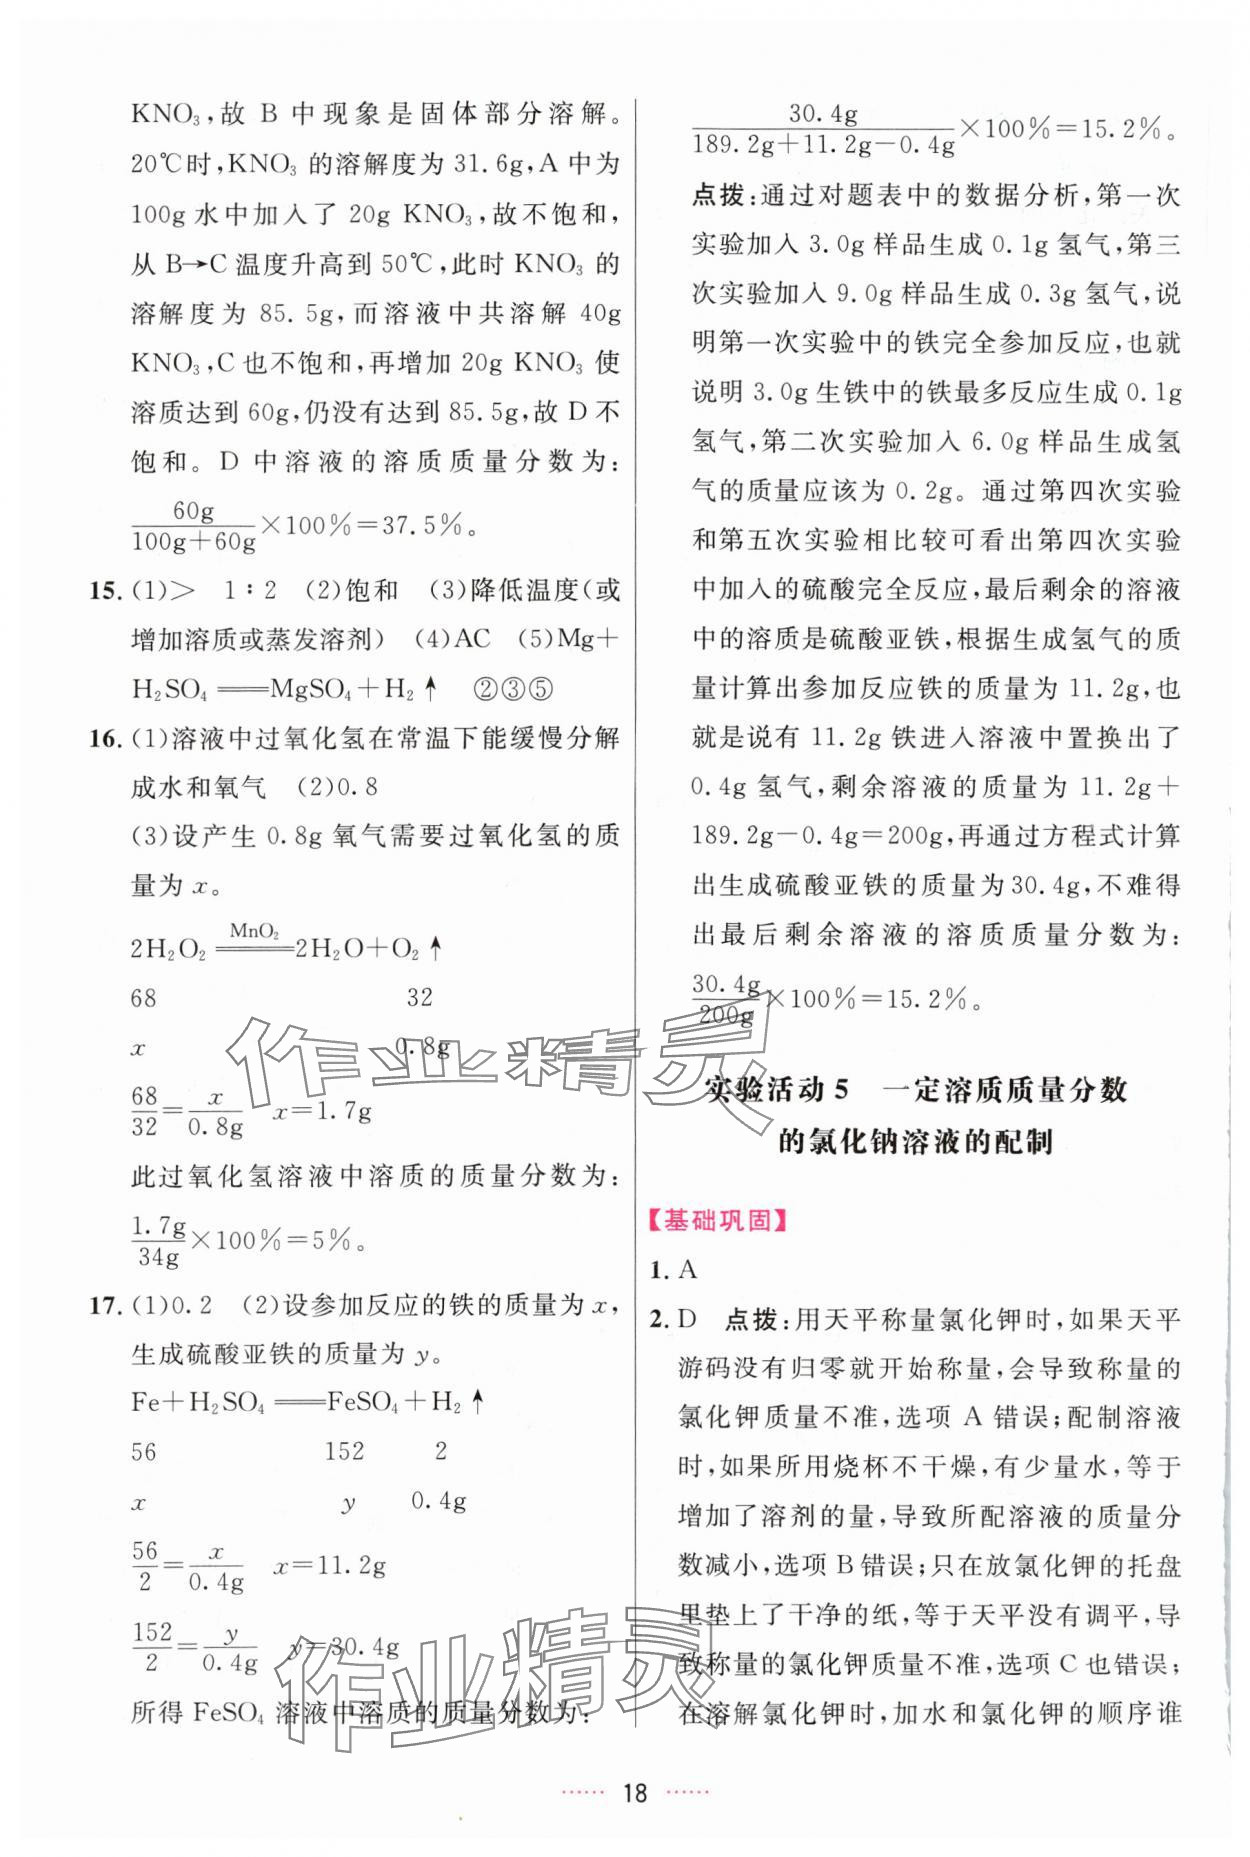 KNO₃,故 B 中现象是固体部分溶解。
20℃时,KNO₃ 的溶解度为 31.6g,A 中为
100g 水中加入了 20g KNO₃,故不饱和,
从 B→C 温度升高到 50℃,此时 KNO₃ 的
溶解度为 85.5g,而溶液中共溶解 40g
KNO₃,C 也不饱和,再增加 20g KNO₃ 使
溶质达到 60g,仍没有达到 85.5g,故 D 不
饱和。D 中溶液的溶质质量分数为:
60g/(100g+60g)×100%=37.5%。
15. (1)> 1∶2 (2)饱和 (3)降低温度(或
增加溶质或蒸发溶剂) (4)AC (5)Mg+
H₂SO₄══MgSO₄+H₂↑ ②③⑤
16. (1)溶液中过氧化氢在常温下能缓慢分解
成水和氧气 (2)0.8
(3)设产生 0.8g 氧气需要过氧化氢的质
量为 x。
MnO₂
2H₂O₂══2H₂O+O₂↑
68 32
x 0.8g
68/32=x/0.8g x=1.7g
此过氧化氢溶液中溶质的质量分数为:
1.7g/34g×100%=5%。
17. (1)0.2 (2)设参加反应的铁的质量为 x,
生成硫酸亚铁的质量为 y。
Fe+H₂SO₄══FeSO₄+H₂↑
56 152 2
x y 0.4g
56/2=x/0.4g x=11.2g
152/2=y/0.4g y=30.4g
所得 FeSO₄ 溶液中溶质的质量分数为:
30.4g/(189.2g+11.2g-0.4g)×100%=15.2%。
点拨:通过对题表中的数据分析,第一次
实验加入 3.0g 样品生成 0.1g 氢气,第三
次实验加入 9.0g 样品生成 0.3g 氢气,说
明第一次实验中的铁完全参加反应,也就
说明 3.0g 生铁中的铁最多反应生成 0.1g
氢气,第二次实验加入 6.0g 样品生成氢
气的质量应该为 0.2g。通过第四次实验
和第五次实验相比较可看出第四次实验
中加入的硫酸完全反应,最后剩余的溶液
中的溶质是硫酸亚铁,根据生成氢气的质
量计算出参加反应铁的质量为 11.2g,也
就是说有 11.2g 铁进入溶液中置换出了
0.4g 氢气,剩余溶液的质量为 11.2g+
189.2g-0.4g=200g,再通过方程式计算
出生成硫酸亚铁的质量为30.4g,不难得
出最后剩余溶液的溶质质量分数为:
30.4g/200g×100%=15.2%。
实验活动 5 一定溶质质量分数
的氯化钠溶液的配制
【基础巩固】
1. A
2. D 点拨:用天平称量氯化钾时,如果天平
游码没有归零就开始称量,会导致称量的
氯化钾质量不准,选项 A 错误;配制溶液
时,如果所用烧杯不干燥,有少量水,等于
增加了溶剂的量,导致所配溶液的质量分
数减小,选项 B 错误;只在放氯化钾的托盘
里垫上了干净的纸,等于天平没有调平,导
致称量的氯化钾质量不准,选项 C 也错误;
在溶解氯化钾时,加水和氯化钾的顺序谁
18
作业精灵
作业精灵